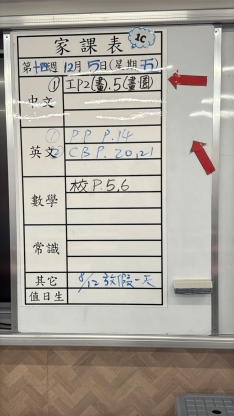 家課表 1C
第十四週 12月5日(星期五)
中文 ① IP2(畫).5(畫圖)
英文 ① PP P.14
② CBP. 20,21
數學 校 P.5,6
常識
其它 8/12 放假一天
值日生